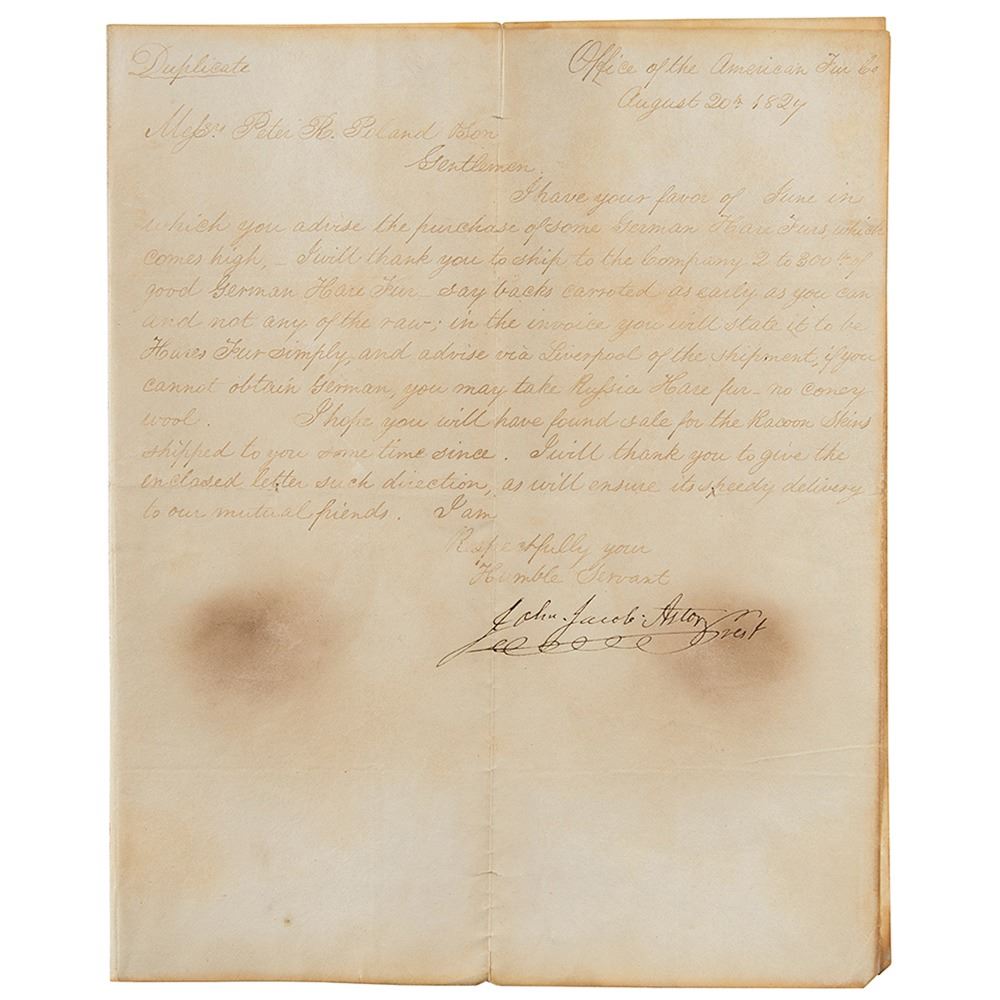 Duplicate
Office of the American Fur Co
August 20th 1827
Messrs Peter R. Poland & Son
Gentlemen
I have your favor of June in
which you advise the purchase of some German Hare Furs, which
comes high, _ I will thank you to ship to the Company 2 to 300 lbs of
good German Hare Fur _ say backs carroted as early as you can
and not any of the raw; in the invoice you will state it to be
Hares Fur simply, and advise via Liverpool of the shipment, if you
cannot obtain German, you may take Russia Hare fur _ no coney
wool. I hope you will have found sale for the Racoon Skins
shipped to you some time since. I will thank you to give the
enclosed letter such direction, as will ensure its speedy delivery
to our mutual friends. I am
Respectfully your
Humble Servant
John Jacob Astor Prest